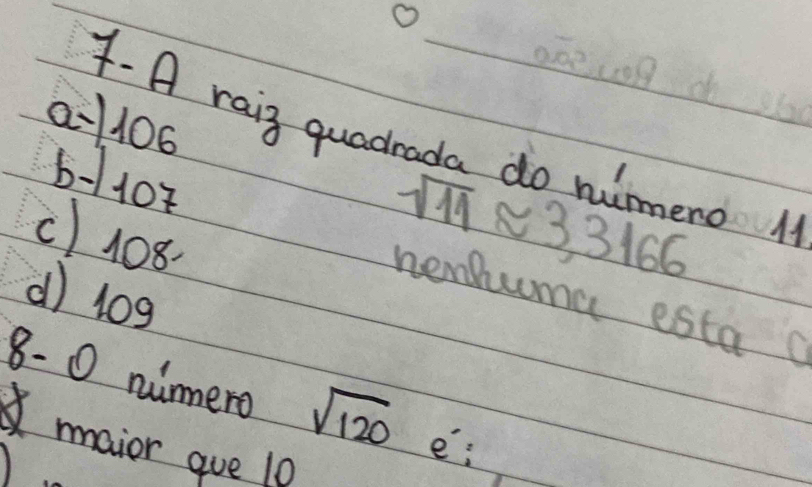 7-A raiz quadrada do número 11.
a-) 106
√11 ≈ 3,3166
b-) 107
nenhuma esta
c) 108
d) 109
8- O número √120 é:
maior que 10